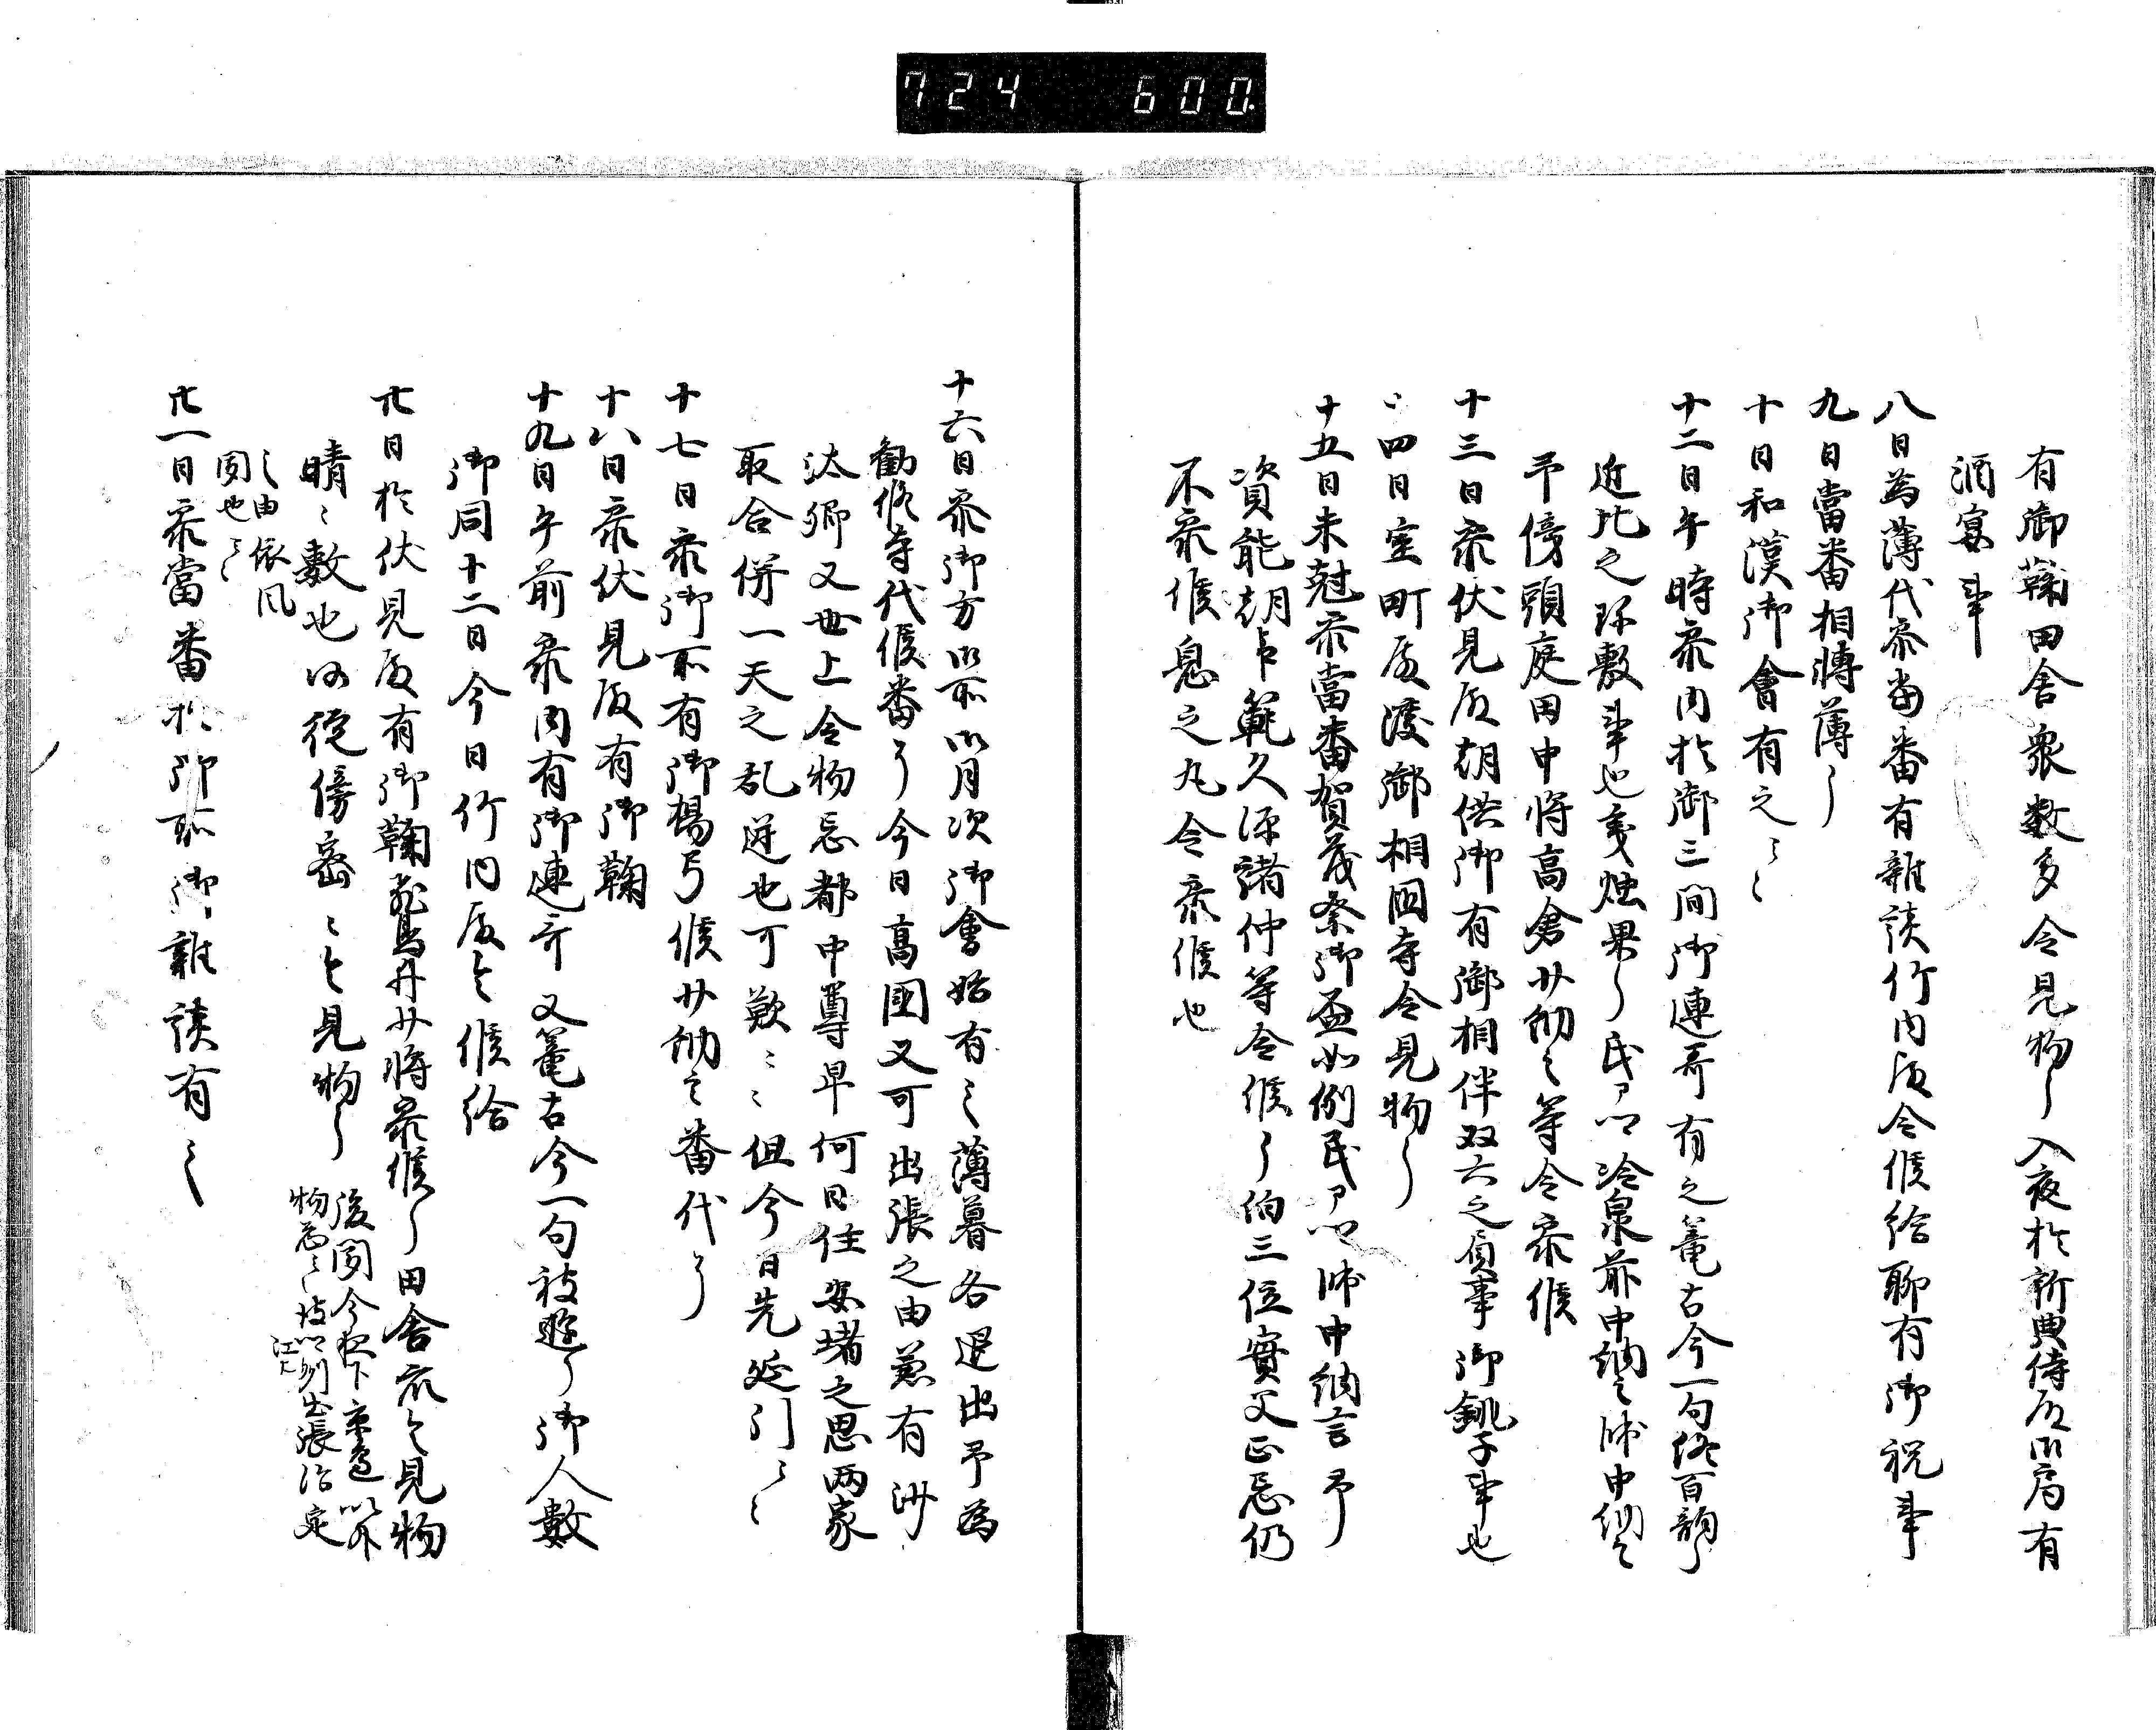 724 600.
有御鞠田舎衆数多令見物了入夜於新典侍殿御局有
酒宴事
八日為薄代参当番有雑談竹内殿令候給聊有御祝事
九日當番相轉薄了
十日和漢御會有之云々
十二日午時参内於御三間御連哥有之篭古今一句終百韵了
近比之珎敷事也及燭果了民部冷泉前中納言帥中納言
予傍頭庭田中将高倉少納言等令参候
十三日参伏見殿朝供御有御相伴双六之負事御銚子事也
十四日室町殿渡御相国寺令見物了
十五日未尅参當番賀茂祭御盃如例民部帥中納言予
資能朝臣範久源諸仲等令候了伯三位實父正忌仍
不参候息之丸令参候也
十六日参御方御所御月次御會始有之薄暮各退出予為
勧修寺代候番了今日高国又可出張之由兼有沙
汰歟又世上令物忩都中尊卑何日住安堵之思両家
取合併一天之乱逆也可歎々々但今日先延引云々
十七日参御所有御楊弓候少納言番代了
十八日参伏見殿有御鞠
十九日午前参内有御連哥又篭古今一句被遊了御人數
御同十二日今日竹内殿令候給
廿日於伏見殿有御鞠飛鳥井少将参候了田舎衆令見物
晴々敷也内従傍密々令見物了 後聞今夜下京邊以外
物忩云々彼御州出張治定
江下
之由依風
聞也云々
廿一日参當番於御所御雑談有之